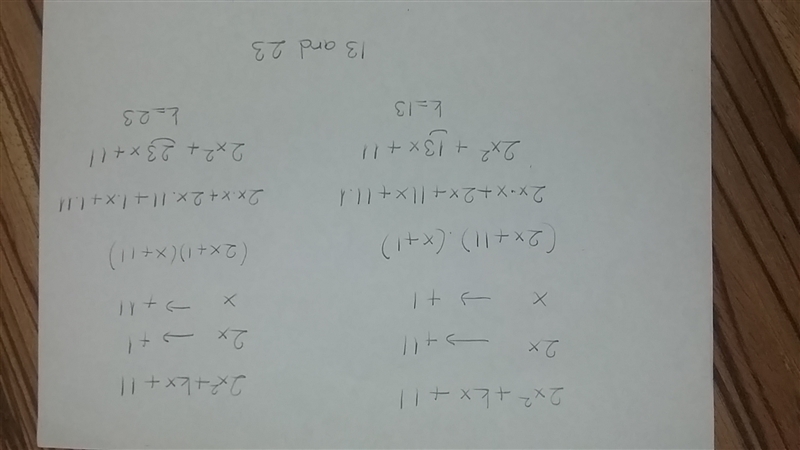 2x² + kx + 11
2x → +11
x → +1
(2x+11).(x+1)
2x·x+2x+11x+11.1
2x² + 13x + 11
k=13
2x²+kx+11
2x → +1
x → +11
(2x+1)(x+11)
2x.x+2x.11+1.x+1.11
2x²+ 23x+11
k=23
13 and 23